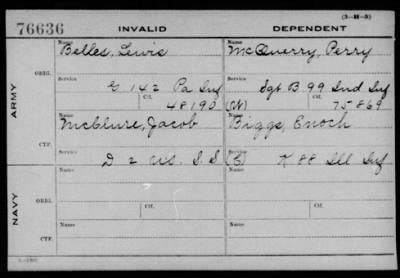 (3-H-3)
76636 INVALID DEPENDENT
ARMY
ORIG.
Name Belles, Lewis Name McQuerry, Perry
Service G 142 Pa Inf Service Sgt B 99 Ind Inf
Ctf. 48190 (W) Ctf. 75869
CTF.
Name McClure, Jacob Name Biggs, Enoch
Service D 2 U.S. S.S. (S) Service K 88 Ill Inf
NAVY
ORIG.
Name Name
Service Ctf. Service Ctf.
CTF.
Name Name